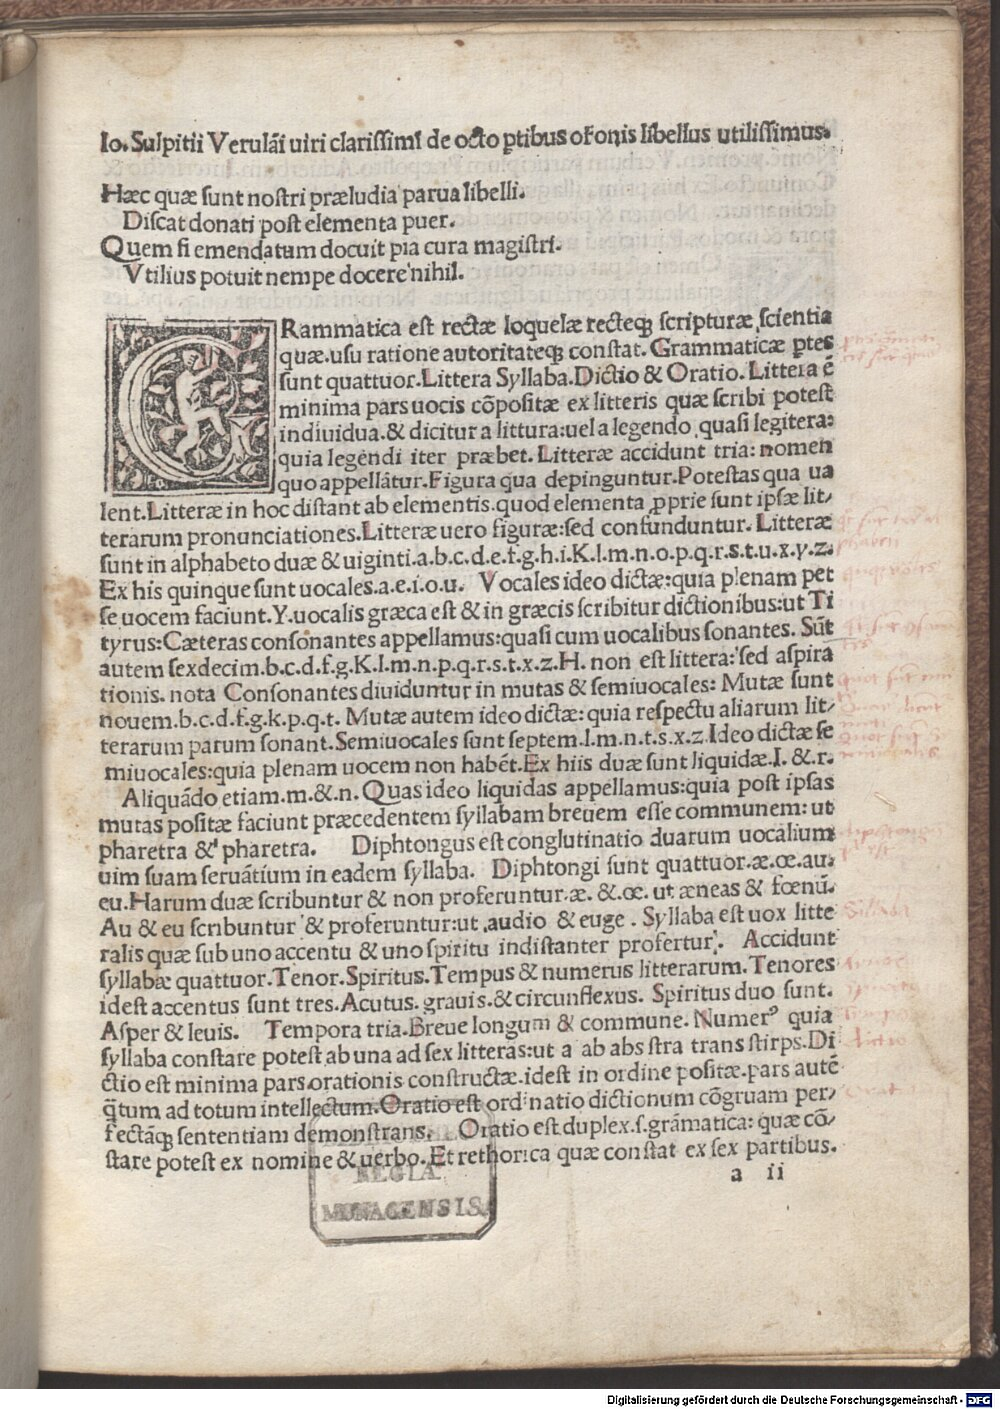 Io. Sulpitii Verulāi uiri clarissimi de octo ꝑtibus oröīs libellus utilissimus.
Hæc quæ sunt nostri præludia parua libelli.
Discat donati post elementa puer.
Quem si emendatum docuit pia cura magistri.
Vtilius potuit nempe docere nihil.
GRammatica est rectæ loquelæ recteqꝫ scripturæ scientia
quæ.usu ratione autoritateqꝫ constat. Grammaticæ ꝑtes
sunt quattuor.Littera Syllaba.Dictio & Oratio. Littera ē
minima pars uocis cōpositæ ex litteris quæ scribi potest
indiuidua.& dicitur a littura:uel a legendo quasi legitera:
quia legendi iter præbet. Litteræ accidunt tria: nomen
quo appellātur.Figura qua depinguntur.Potestas qua ua
lent.Litteræ in hoc distant ab elementis.quod elementa ꝓprie sunt ipsæ lit/
terarum pronunciationes.Litteræ uero figuræ:sed confunduntur. Litteræ
sunt in alphabeto duæ & uiginti.a.b.c.d.e.f.g.h.i.K.l.m.n.o.p.q.r.s.t.u.x.y.z.
Ex his quinque sunt uocales.a.e.i.o.u. Vocales ideo dictæ:quia plenam per
se uocem faciunt.Y.uocalis græca est & in græcis scribitur dictionibus:ut Ti
tyrus:Cæteras consonantes appellamus:quasi cum uocalibus sonantes. Sūt
autem sexdecim.b.c.d.f.g.K.l.m.n.p.q.r.s.t.x.z.H. non est littera: sed aspira
tionis. nota Consonantes diuiduntur in mutas & semiuocales: Mutæ sunt
nouem.b.c.d.f.g.k.p.q.t. Mutæ autem ideo dictæ: quia respectu aliarum lit/
terarum parum sonant.Semiuocales sunt septem.l.m.n.t.s.x.z Ideo dictæ se
miuocales:quia plenam uocem non habēt.Ex hiis duæ sunt liquidæ.l. &.r.
Aliquādo etiam.m.&.n. Quas ideo liquidas appellamus:quia post ipsas
mutas positæ faciunt præcedentem syllabam breuem esse communem: ut
pharetra & pharetra. Diphtongus est conglutinatio duarum uocalium
uim suam seruātium in eadem syllaba. Diphtongi sunt quattuor.æ.œ.au.
eu.Harum duæ scribuntur & non proferuntur.æ. &.œ. ut æneas & fœnū.
Au & eu scribuntur & proferuntur:ut audio & euge . Syllaba est uox litte
ralis quæ sub uno accentu & uno spiritu indistanter profertur. Accidunt
syllabæ quattuor.Tenor.Spiritus.Tempus & numerus litterarum.Tenores
idest accentus sunt tres.Acutus. grauis.& circunflexus. Spiritus duo sunt.
Asper & leuis. Tempora tria.Breue longum & commune. Numerꝰ quia
syllaba constare potest ab una ad sex litteras:ut a ab abs stra trans stirps.Di
ctio est minima pars orationis constructæ.idest in ordine positæ.pars autē
q̄tum ad totum intellectum.Oratio est ordinatio dictionum cōgruam per/
fectāqꝫ sententiam demonstrans. Oratio est duplex.s.grāmatica: quæ cō/
stare potest ex nomine & uerbo.Et rethorica quæ constat ex sex partibus.
a ii
REGIA
MONACENSIS.
Digitalisierung gefördert durch die Deutsche Forschungsgemeinschaft - DFG